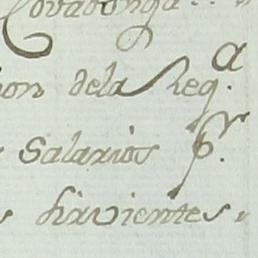 Covadonga..
on dela Req.a
Salarios p.r
s sirvientes